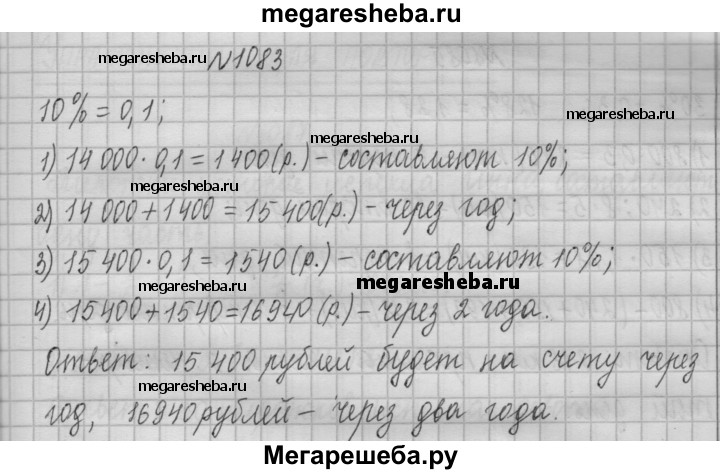 megaresheba.ru
megaresheba.ru №1083
10% = 0,1; megaresheba.ru
megaresheba.ru
1) 14 000 · 0,1 = 1400 (р.) - составляют 10%;
megaresheba.ru
2) 14 000 + 1400 = 15 400 (р.) - через год;
3) 15 400 · 0,1 = 1540 (р.) - составляют 10%;
megaresheba.ru megaresheba.ru
4) 15400 + 1540 = 16940 (р.) - через 2 года.
megaresheba.ru
Ответ: 15 400 рублей будет на счету через
megaresheba.ru
год, 16940 рублей - через два года.
Мегарешеба.ру